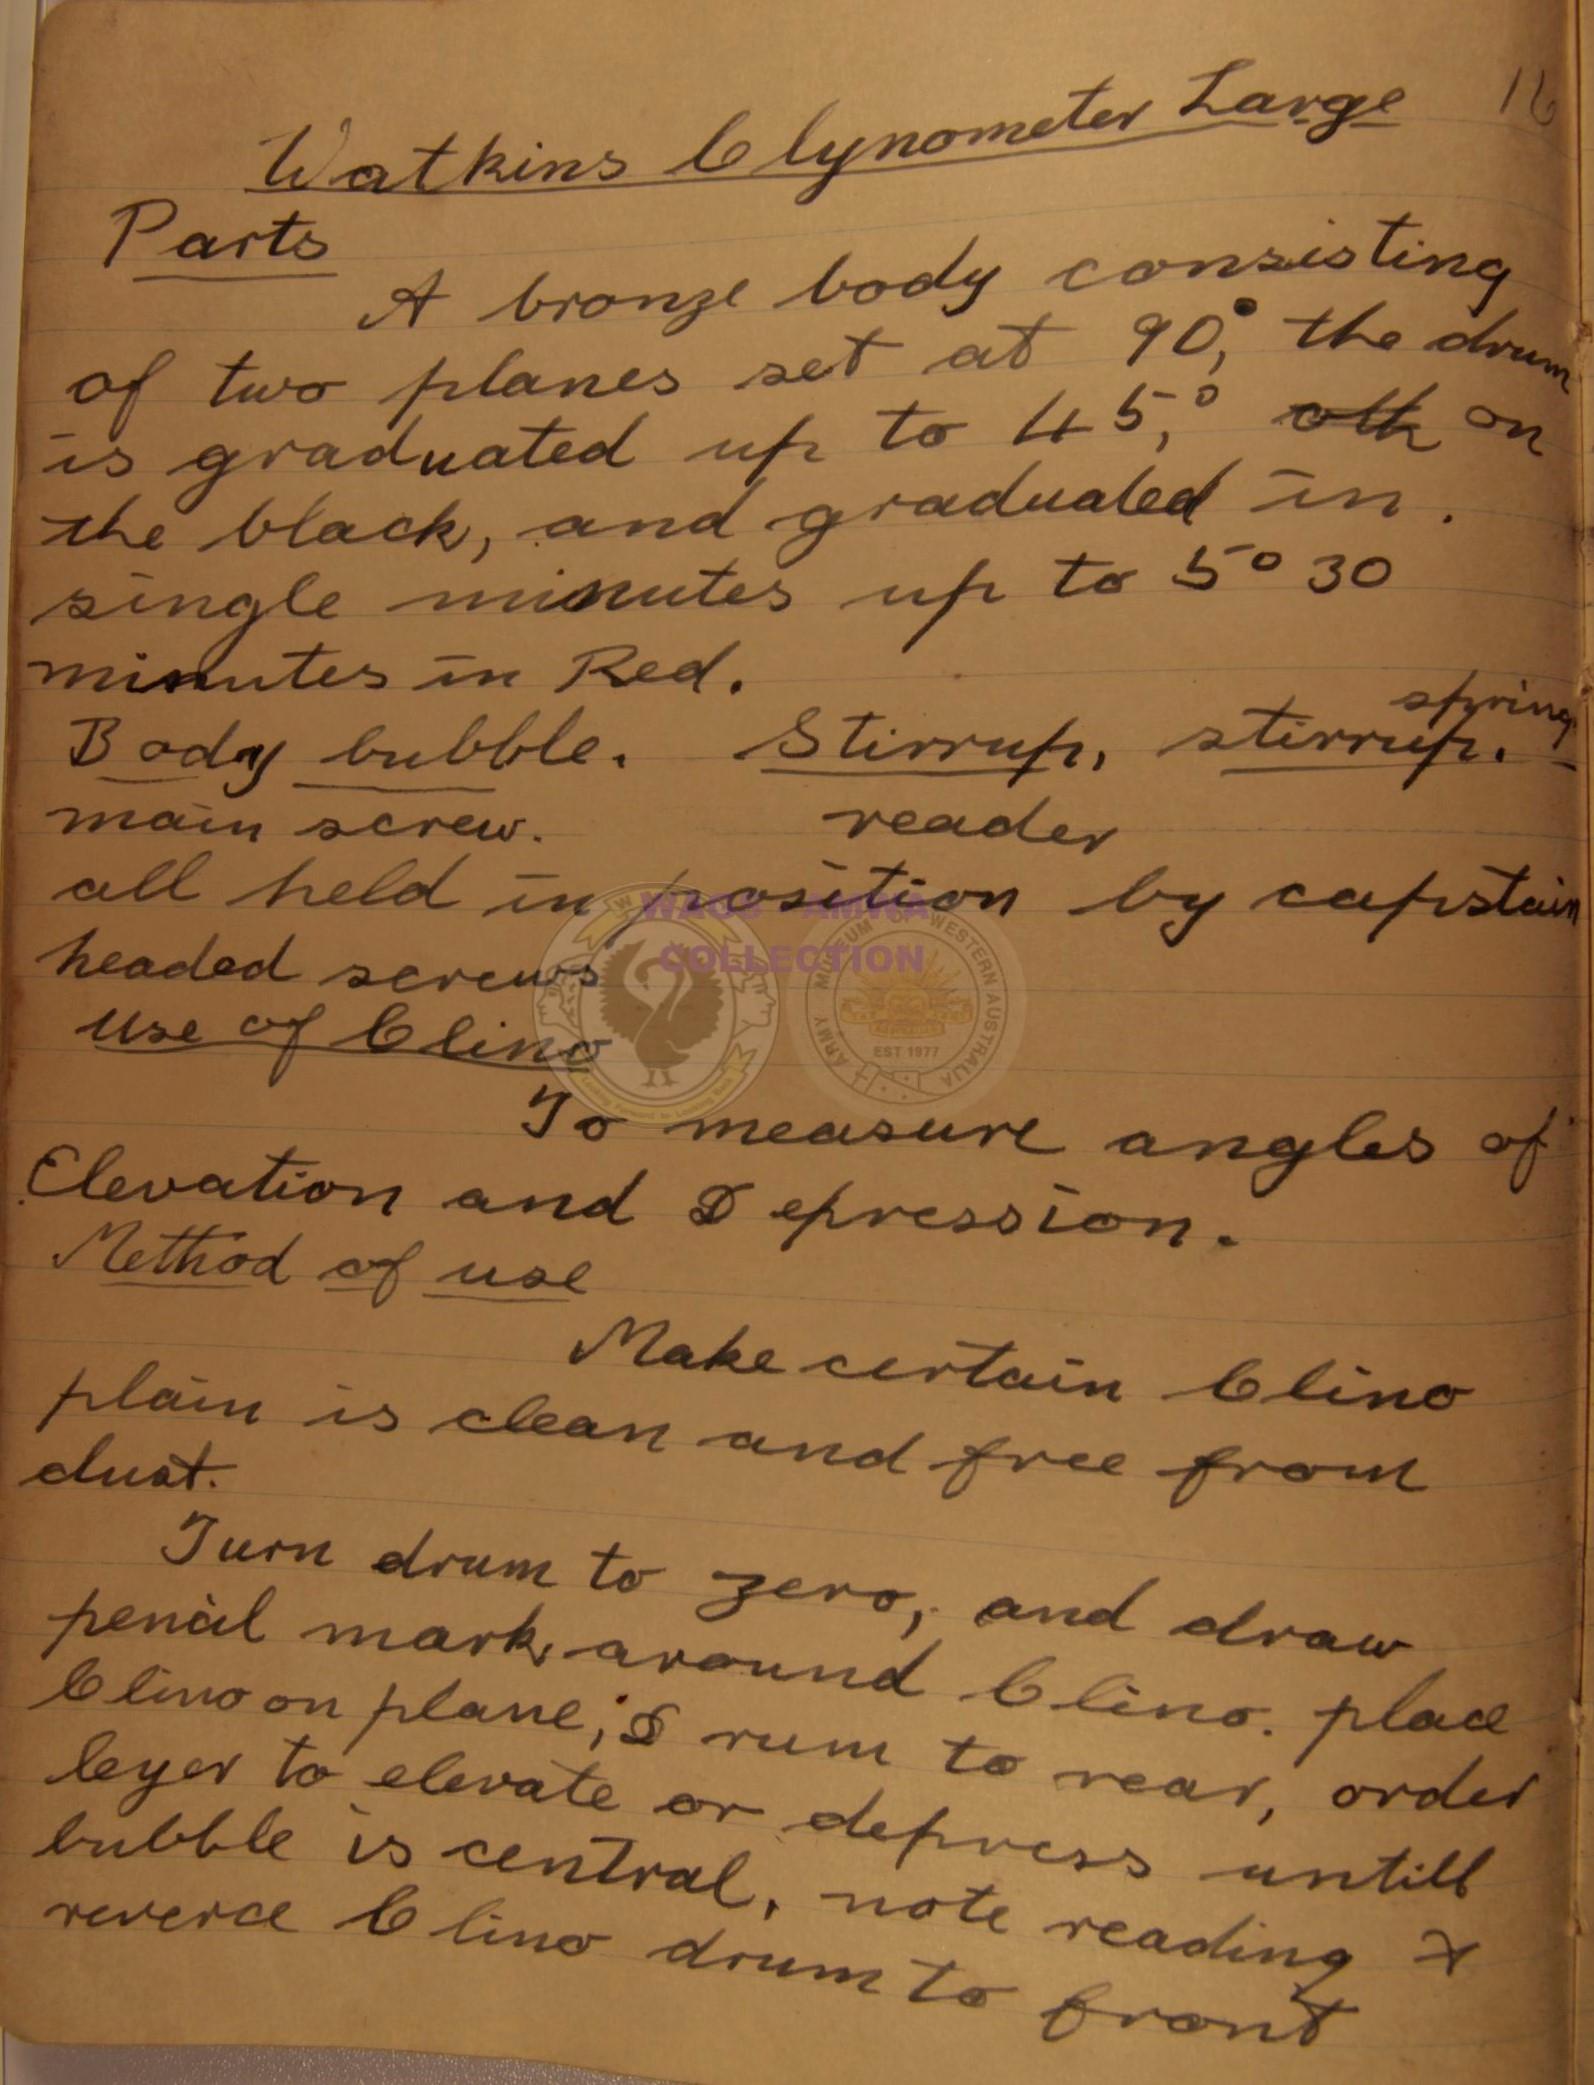 16
Watkins Clynometer Large
Parts
A bronze body consisting
of two planes set at 90°, the drum
is graduated up to 45°, oth on
the black, and graduated in.
single minutes up to 5° 30
minutes in Red.
spring
Body bubble. Stirrup, stirrup.
main screw. reader
all held in position by capstain
headed screws
use of Clino
To measure angles of
Elevation and Depression.
Method of use
Make certain Clino
plain is clean and free from
dust.
Turn drum to zero, and draw
pencil mark around Clino. place
Clino on plane, Drum to rear, order
leyer to elevate or depress untill
bubble is central, note reading &
reverce Clino drum to front
WAGS AMWA
COLLECTION
ARMY MUSEUM OF WESTERN AUSTRALIA
EST 1977
Looking Forward to Looking Back